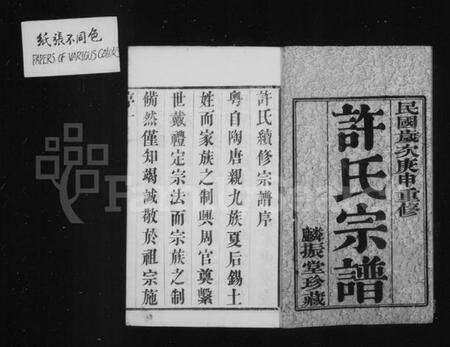 紙張不同色
PAPERS OF VARIOUS COLORS
民國歲次庚申重修
許氏宗譜
麟振堂珍藏
許氏續修宗譜序
粤自陶唐親九族夏后錫土
姓而家族之制興周官奠繫
世戴禮定宗法而宗族之制
備然僅知竭誠敬於祖宗施
序